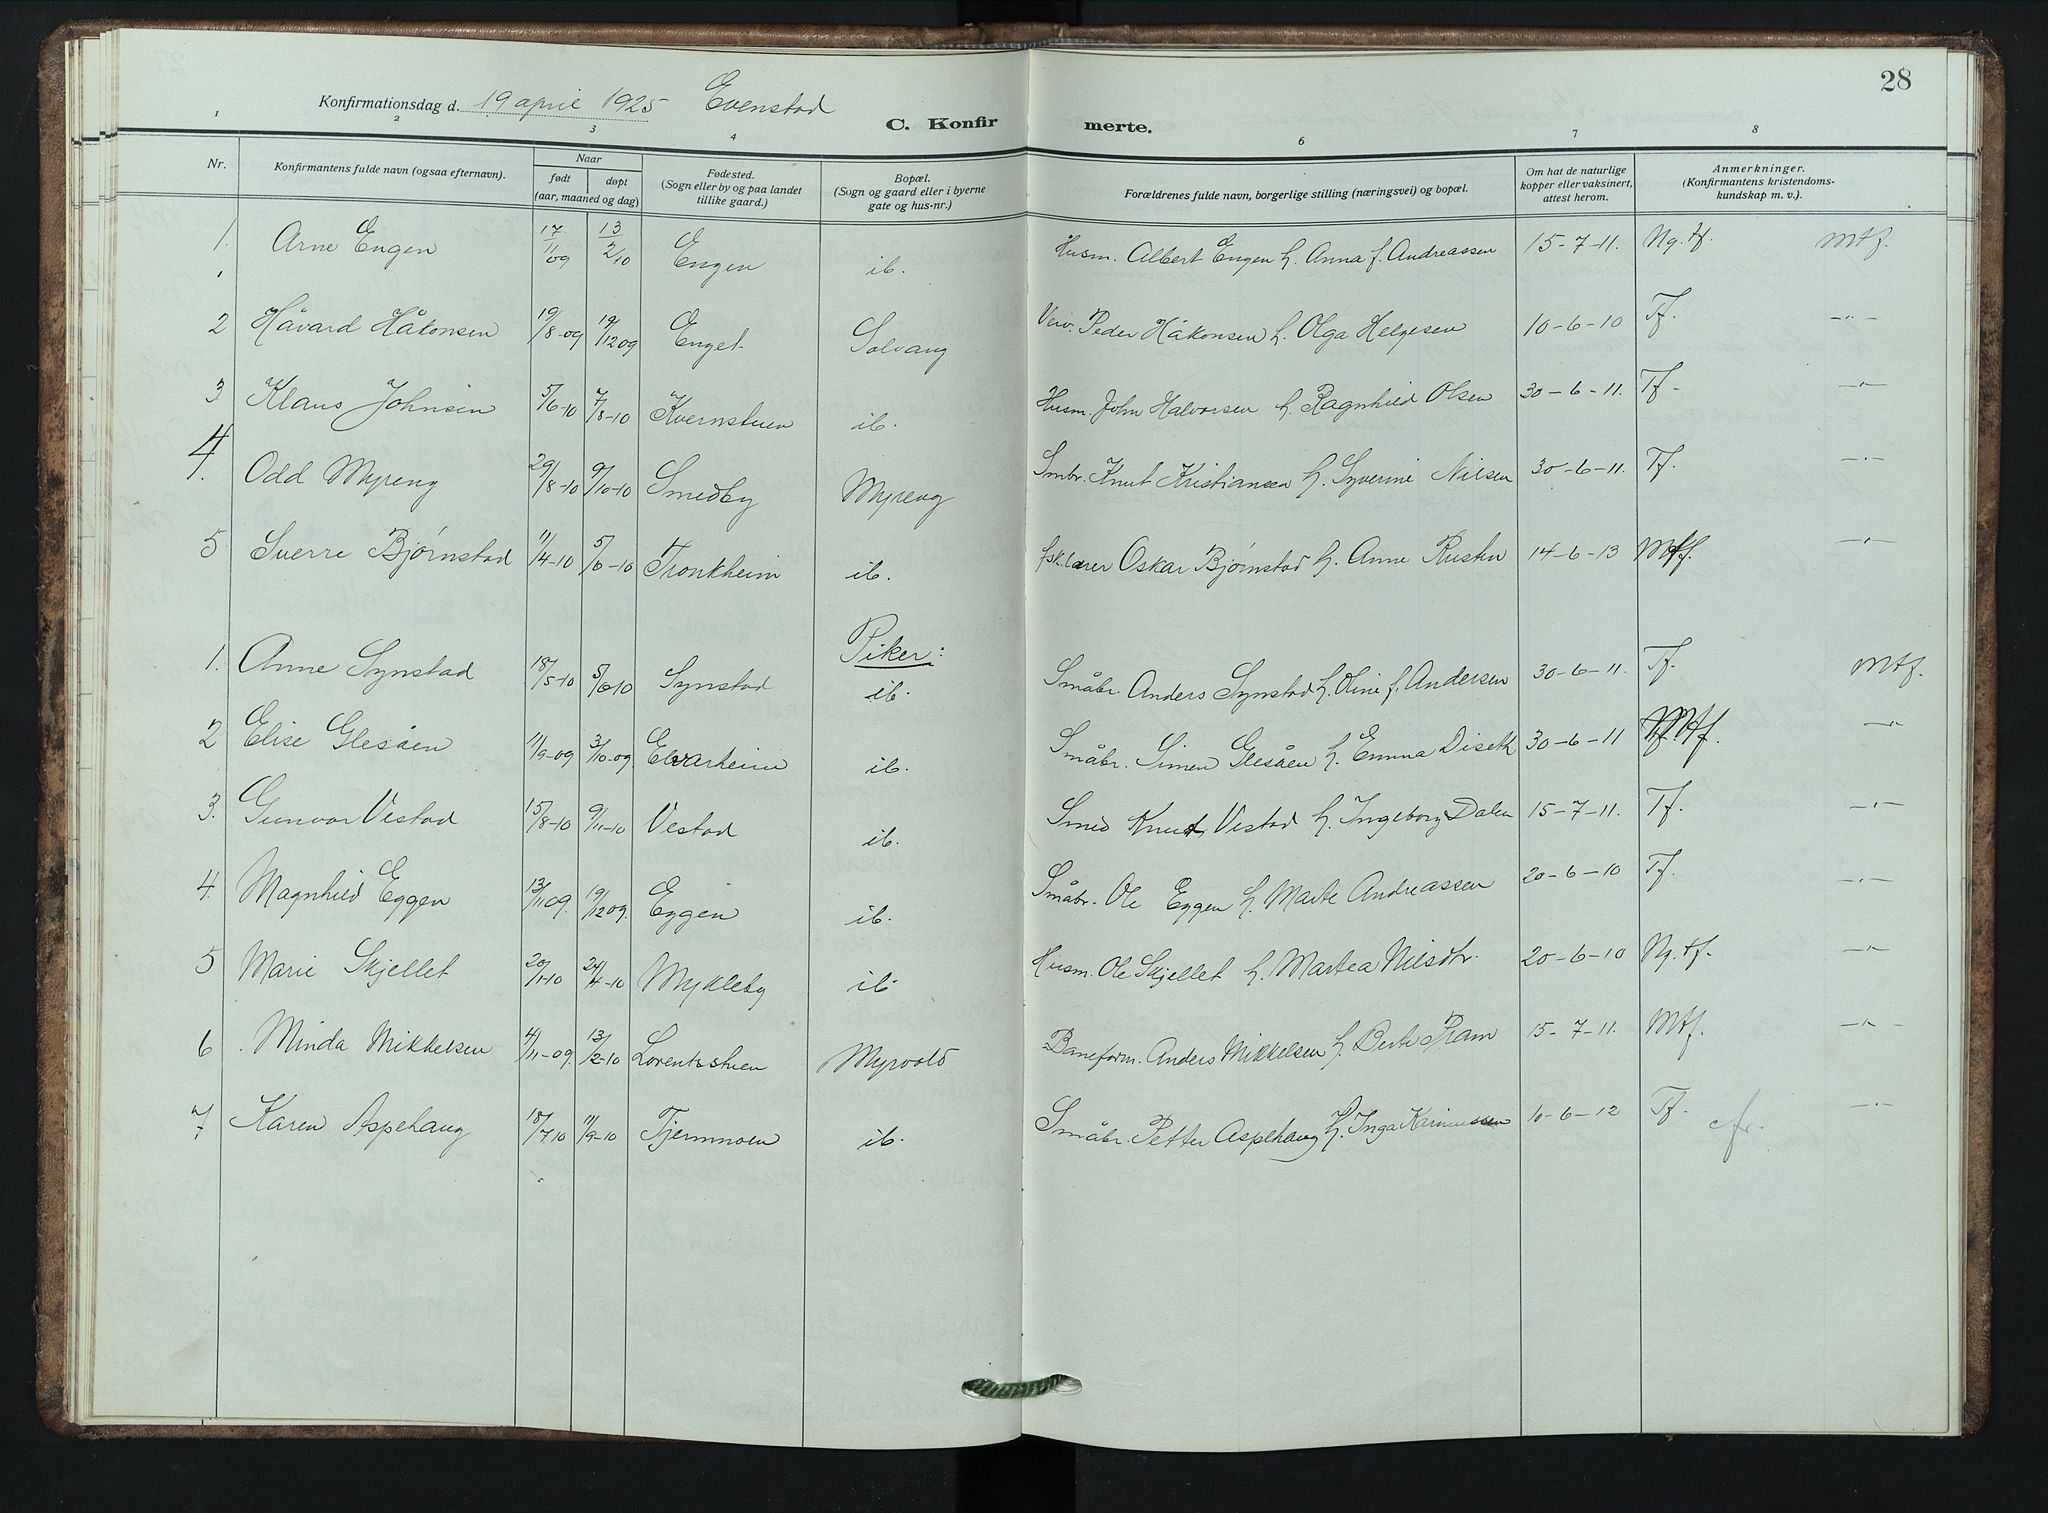 28
Konfirmationsdag d. 19 april 1925 Evenstad
C. Konfir merte.
1 2 3 4 6 7 8
Nr. Konfirmantens fulde navn (ogsaa efternavn). Naar født døpt (aar, maaned og dag) Fødested. (Sogn eller by og paa landet tillike gaard.) Bopæl. (Sogn og gaard eller i byerne gate og hus-nr.) Forældrenes fulde navn, borgerlige stilling (næringsvei) og bopæl. Om hat de naturlige kopper eller vaksinert, attest herom. Anmerkninger. (Konfirmantens kristendoms-kundskap m. v.).
1. Arne Engen 17/11 09 13/2 10 Engen ib. Husm. Albert Engen h. Anna f. Andreassen 15-7-11. Ng. tf. Mtf.
2 Håvard Håkonsen 19/8-09 19/12 09 Enget Solvang Veiv. Peder Håkonsen h. Olga Helgesen 10-6-10 Tf. -"-
3 Klaus Johnsen 5/6-10 7/8-10 Kvernstuen ib. Husm. John Halvorsen h. Ragnhild Olsen 30-6-11. Tf. -"-
4. Odd Myreng 29/8-10 9/10-10 Smedby Myreng Smbr. Knut Kristiansen h. Syverine Nilsen 30-6-11. Tf. -"-
5 Sverre Bjørnstad 11/4-10 5/6-10 Tronkheim ib. fsk. lærer Oskar Bjørnstad h. Anne Rusten 14-6-13 Mtf.
Piker:
1. Anne Synstad 18/5-10 5/6 10 Synstad ib. Småbr. Anders Synstad h. Oline f. Andersen 30-6-11. Tf. Mtf.
2 Elise Glesåen 11/9-09 3/10-09 Elvarheim ib. Småbr. Simen Glesåen h. Emma Diseth 30-6-11 Mtf. -"-
3. Gunvor Vestad 15/8-10 9/11-10 Vestad ib. Smed Knut Vestad h. Ingeborg Dalen 15-7-11. Tf. -"-
4. Magnhild Eggen 13/11 09. 19/12 09. Eggen ib. Småbr. Ole Eggen h. Marte Andreassen 20-6-10 Tf. -"-
5 Marie Skjellet 20/1-10 24/4-10 Mykleby ib. Husm. Ole Skjellet h. Martea Nilsdtr. 20-6-10 Ng. tf. -"-
6 Minda Mikkelsen 4/11-09. 13/2-10 Lorentsstuen Myrvold Baneform. Anders Mikkelsen h. Berte Ram 15-7-11. Mtf. -"-
7 Karen Aspehaug 18/7 10 11/9-10 Tjernmoen ib. Småbr. Petter Aspehaug h. Inga 10-6-12 Tf. cfr. -"-